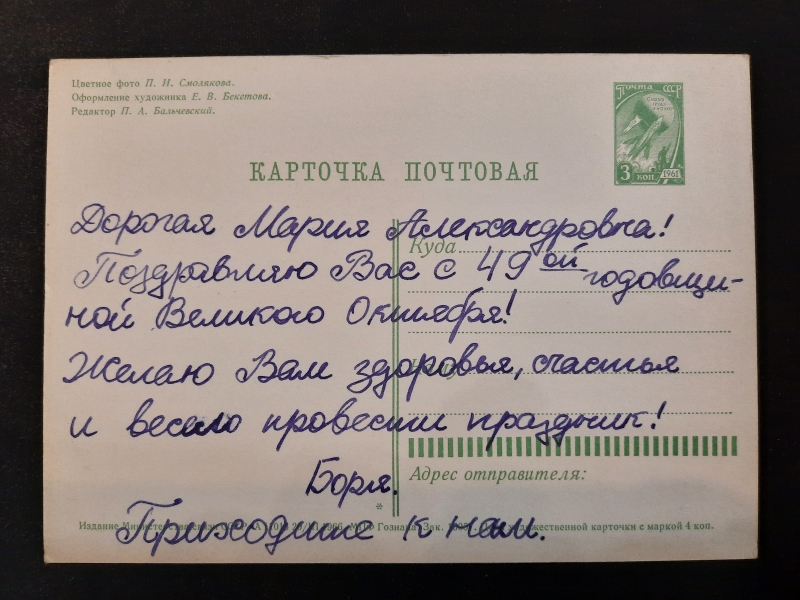 Цветное фото П. И. Смолякова.
Оформление художника Е. В. Бекетова.
Редактор П. А. Бальчевский.
Почта СССР
3 КОП. 1961
КАРТОЧКА ПОЧТОВАЯ
Дорогая Мария Александровна!
Куда
Поздравляю Вас с 49ой годовщи-
ной Великого Октября!
Желаю Вам здоровья, счастья
и весело провести праздник!
Адрес отправителя:
Боря.
*
Издание Министерства Гознака. Зак. художественной карточки с маркой 4 коп.
Приходите к нам.